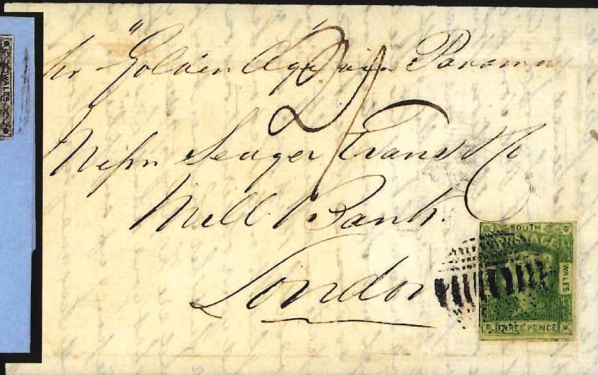 Pr "Golden Age" via Panama
2/
Messrs Seager Evans & Co
Mill Bank
London
SOUTH
WALES
THREE PENCE